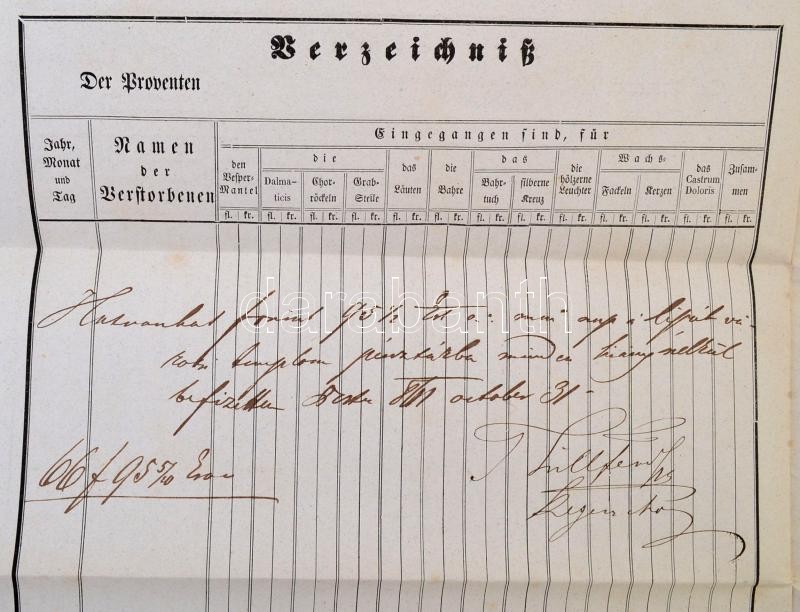 Verzeichniß
Der Proventen
Jahr, Monat und Tag
Namen der Verstorbenen
Eingegangen sind, für
den Vesper-Mantel
die
Dalma-ticis
Chor-röckeln
Grab-Stelle
das Läuten
die Bahre
das
Bahr-tuch
silberne Kreuz
die hölzerne Leuchter
Wachs-
Fackeln
Kerzen
das Castrum Doloris
Zusam-men
fl. kr. fl. kr. fl. kr. fl. kr. fl. kr. fl. kr. fl. kr. fl. kr. fl. kr. fl. kr. fl. kr. fl. kr. fl. kr.
Hatvanhat forint 95 ½ mai nap a lipót vá-
rosi templom pénztárba minden hiány nélkül
befizettem Pesten october 31-
66 f 95 5/10
darabanth